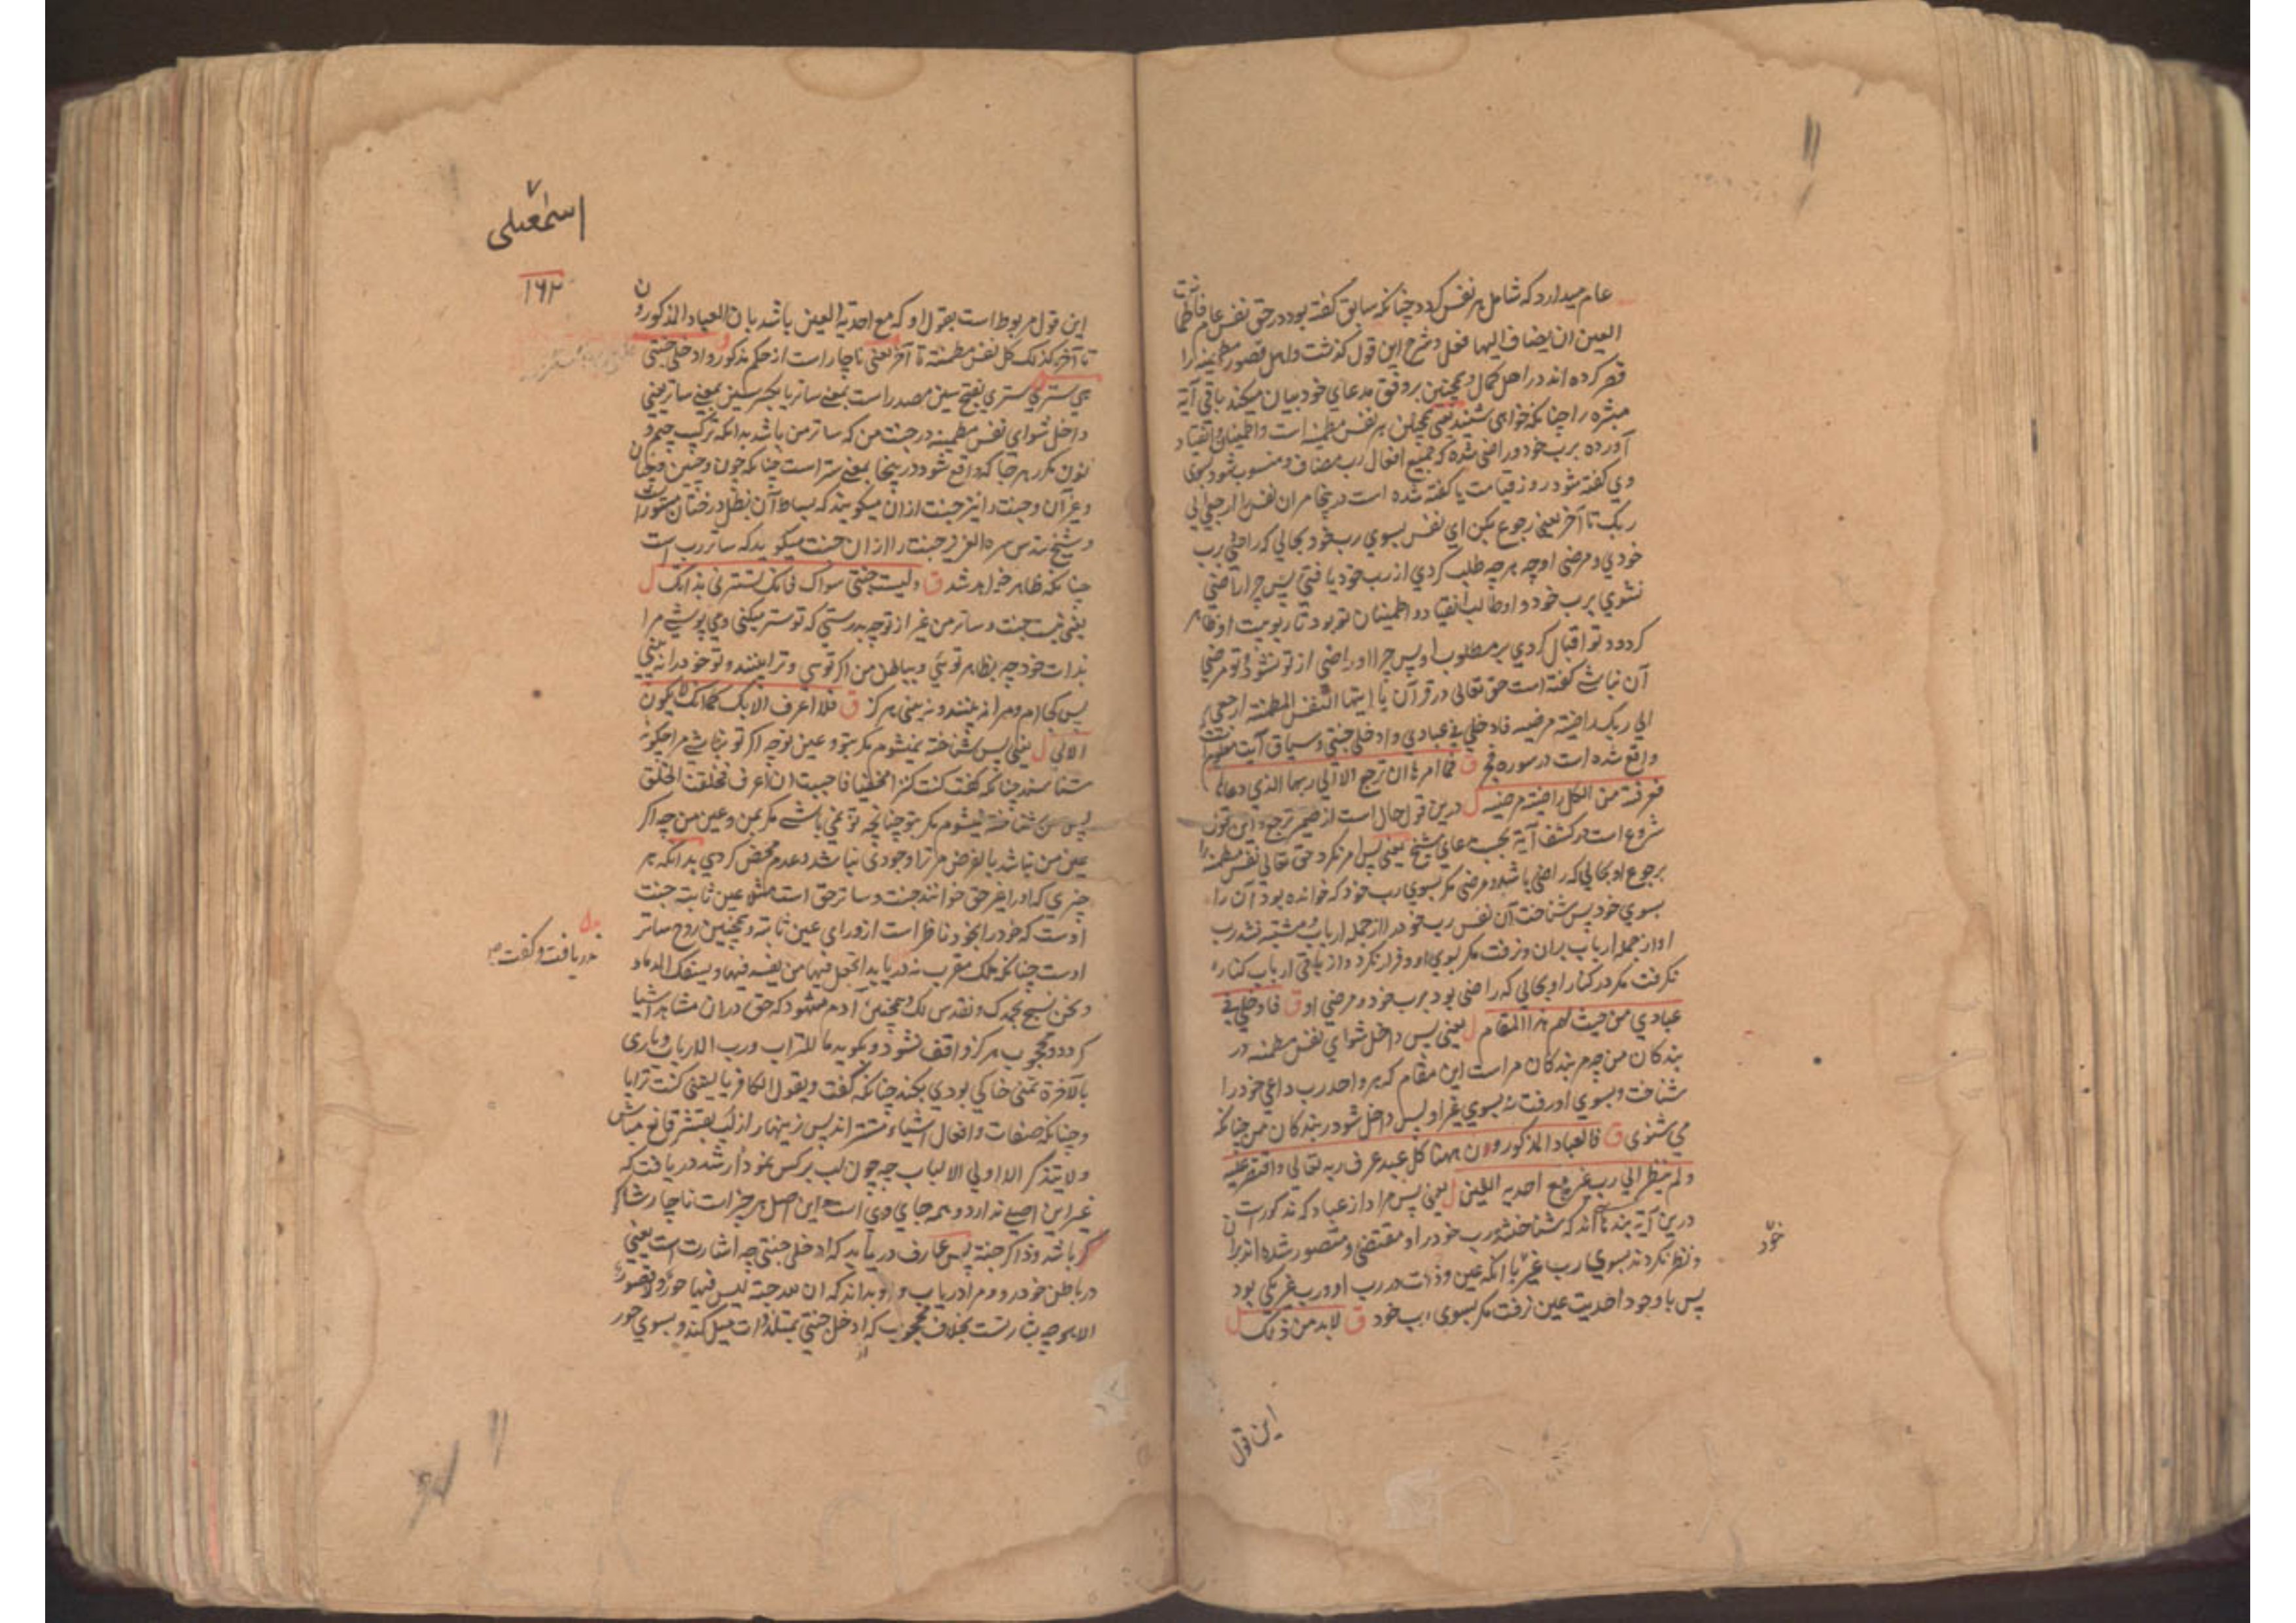 عام میدارد که شامل هر نفس کردد چنانکه سابق کفته بود در حق نفس عام فاطمأنت
العین ان یضاف الیها فعل و شرح این قول کذشت و اهل قصور مطمئنه را
قصر کرده اند در اهل کمال و همچنین بر وفق مدعای خود بیان میکند باقی آیة
مبشره را چنانکه خواهی شنید یعنی همچنین هر نفس مطمئنه است و اطمینان و انقیاد
آورده برب خود و راضی شده که جمیع افعال رب مضاف و منسوب شود بسوی
وی کفته شود روز قیامت یا کفته شده است در ینجا مر آن نفس را ارجعی الی
ربک تا آخر یعنی رجوع بکن ای نفس بسوی رب خود بحالی که راضی رب
خودی و مرضی او چه هرچه طلب کردی از رب خود یافتی پس چرا راضی
نشوی برب خود و او طالب انقیاد و اطمینان تو بود تا ربوبیت او ظاهر
کردد و تو اقبال کردی بر مطلوب او پس چرا او راضی از تو نشود و تو مرضی
آن نباشی کفته است حق تعالی در قرآن یا ایتها النفس المطمئنه ارجعی
الی ربک راضیة مرضیه فادخلی فی عبادی و ادخلی جنتی و سیاق آیت
واقع شده است در سوره فجر ق فما امرها ان ترجع الا الی ربها الذی دعاها
فعرفته من الکل راضیة مرضیه ل درین قول حال است از ضمیر ترجع و این قول
شروع است در کشف آیة بحسب مدعای شیخ یعنی پس امر نکرد حق تعالی نفس مطمئنه را
برجوع او بحالی که راضی باشد و مرضی مکر بسوی رب خود که خوانده بود آن را
بسوی خود پس شناخت آن نفس رب خود را از جمله ارباب و مشتبه نشد رب
او از جمله ارباب بران و نرفت مکر بسوی او و فرار نکرد و از باقی ارباب کناره
نکرفت مکر در کنار او بحالی که راضی بود برب خود و مرضی او ق فادخلی فی
عبادی من حیث لهم هذا المقام ل یعنی پس داخل شو ای نفس مطمئنه در
بندکان من چه مر بندکان مراست این مقام که هر واحد رب داعی خود را
شناخت و بسوی او رفت نه بسوی غیر او پس داخل شو در بندکان من چنانکه
می شنوی ق فالعباد المذکورون هنا کل عبد عرف ربه تعالی و اقتصر علیه
و لم ینظر الی رب غیره مع احدیه العین ل یعنی پس مراد از عباد که مذکور است
درین آیة بندهآنند که شناختند رب خود را و مقتضی و مقتصر شده اند بران
و نظر نکردند بسوی رب غیر با آنکه عین و ذات در رب او و رب غیر یکی بود
پس با وجود احدیت عین نرفت مکر بسوی رب خود ق لابد من ذلک ل
خود
این قول
اسمعیلی
۷
۱۶۲
این قول مربوط است بقول او که مع احدیة العین باشد بان العباد المذکورون
تا آخر کذلک کل نفس مطمئنة تا آخر یعنی ناچار است از حکم مذکور و ادخلی جنتی
هی ستری ستری بفتح سین مصدر است بمعنی ساتر یا بکسر سین بمعنی ساتر یعنی
داخل شو ای نفس مطمئنه در جنت من که ساتر من باشد بدانکه ترکیب جیم و
نون مکرر هر جا که واقع شود در ینجا بمعنی ستر است چنانکه جنون و جنین و جان
و غیر آن و جنت را نیز جنت ازان میکویند که بساط آن بظل درختان مستور است
و شیخ قدس سره العزیز جنت را ازان جنت میکوید که ساتر رب است
چنانکه ظاهر خواهد شد ق و لیست جنتی سواک فانک تسترنی بذاتک ل
یعنی نیست جنت و ساتر من غیر از تو چه بدرستی که تو ستر میکنی و می پوشی مرا
بذات خود چه بظاهر توئی و بباطن من اکر توئی و ترا بینند و تو خود را به بینی
پس کجا ام و مرا نه بینند و نه بینی هرکز ق فلا اعرف الا بک کما انک لا یکون
الا بی ل یعنی پس شناخته نمیشوم مکر بتو و عین تو چه اکر تو نباشی مرا چکونه
شناسند چنانکه کفت کنت کنزا مخفیا فاحببت ان اعرف فخلقت الخلق
پس من شناخته نمیشوم مکر بتو چنانچه تو نمی باشی مکر بمن و عین من چه اکر
عین من نباشد بالفرض مر ترا وجودی نباشد و عدم محض کردی بدانکه هر
چیزی که او را غیر حق خوانند جنت و ساتر حق است مثلا عین ثابته جنت
اوست که خود را بخود ناظر است از ورای عین ثابته و همچنین روح ساتر
اوست چنانکه ملک مقرب نه دریابد اتجعل فیها من یفسد فیها و یسفک الدماء
و نحن نسبح بحمدک و نقدس لک و همچنین آدم مشهود که حق دران مشاهد اشیا
کردد و محجوب هرکز واقف نشود و بکوید ما للتراب و رب الارباب و باری
بالآخرة تمنی خاکی بودی بکند چنانکه کفت و یقول الکافر یا لیتنی کنت ترابا
و چنانکه صفات و افعال اشیاء مستتر اند پس زینهار از لب بقشر قانع مباش
و لا یتذکر الا اولی الالباب چه چون لب بر کس نمودار شد دریافت که
غیر این اصلی ندارد و همه جای وی است و این اصل هر چیز است ناچار شاکر
کر باشد و ذاکر جنة پس عارف دریابد که ادخلی جنتی چه اشارت است یعنی
در باطن خود رو و مرا دریاب و او بداند که ان لله جنة لیس فیها حور و لا قصور
الا بوجه بشارت بخلاف محجوب که از ادخلی جنتی بمستلذات میل کند و بسوی حور
دریافت و کفت